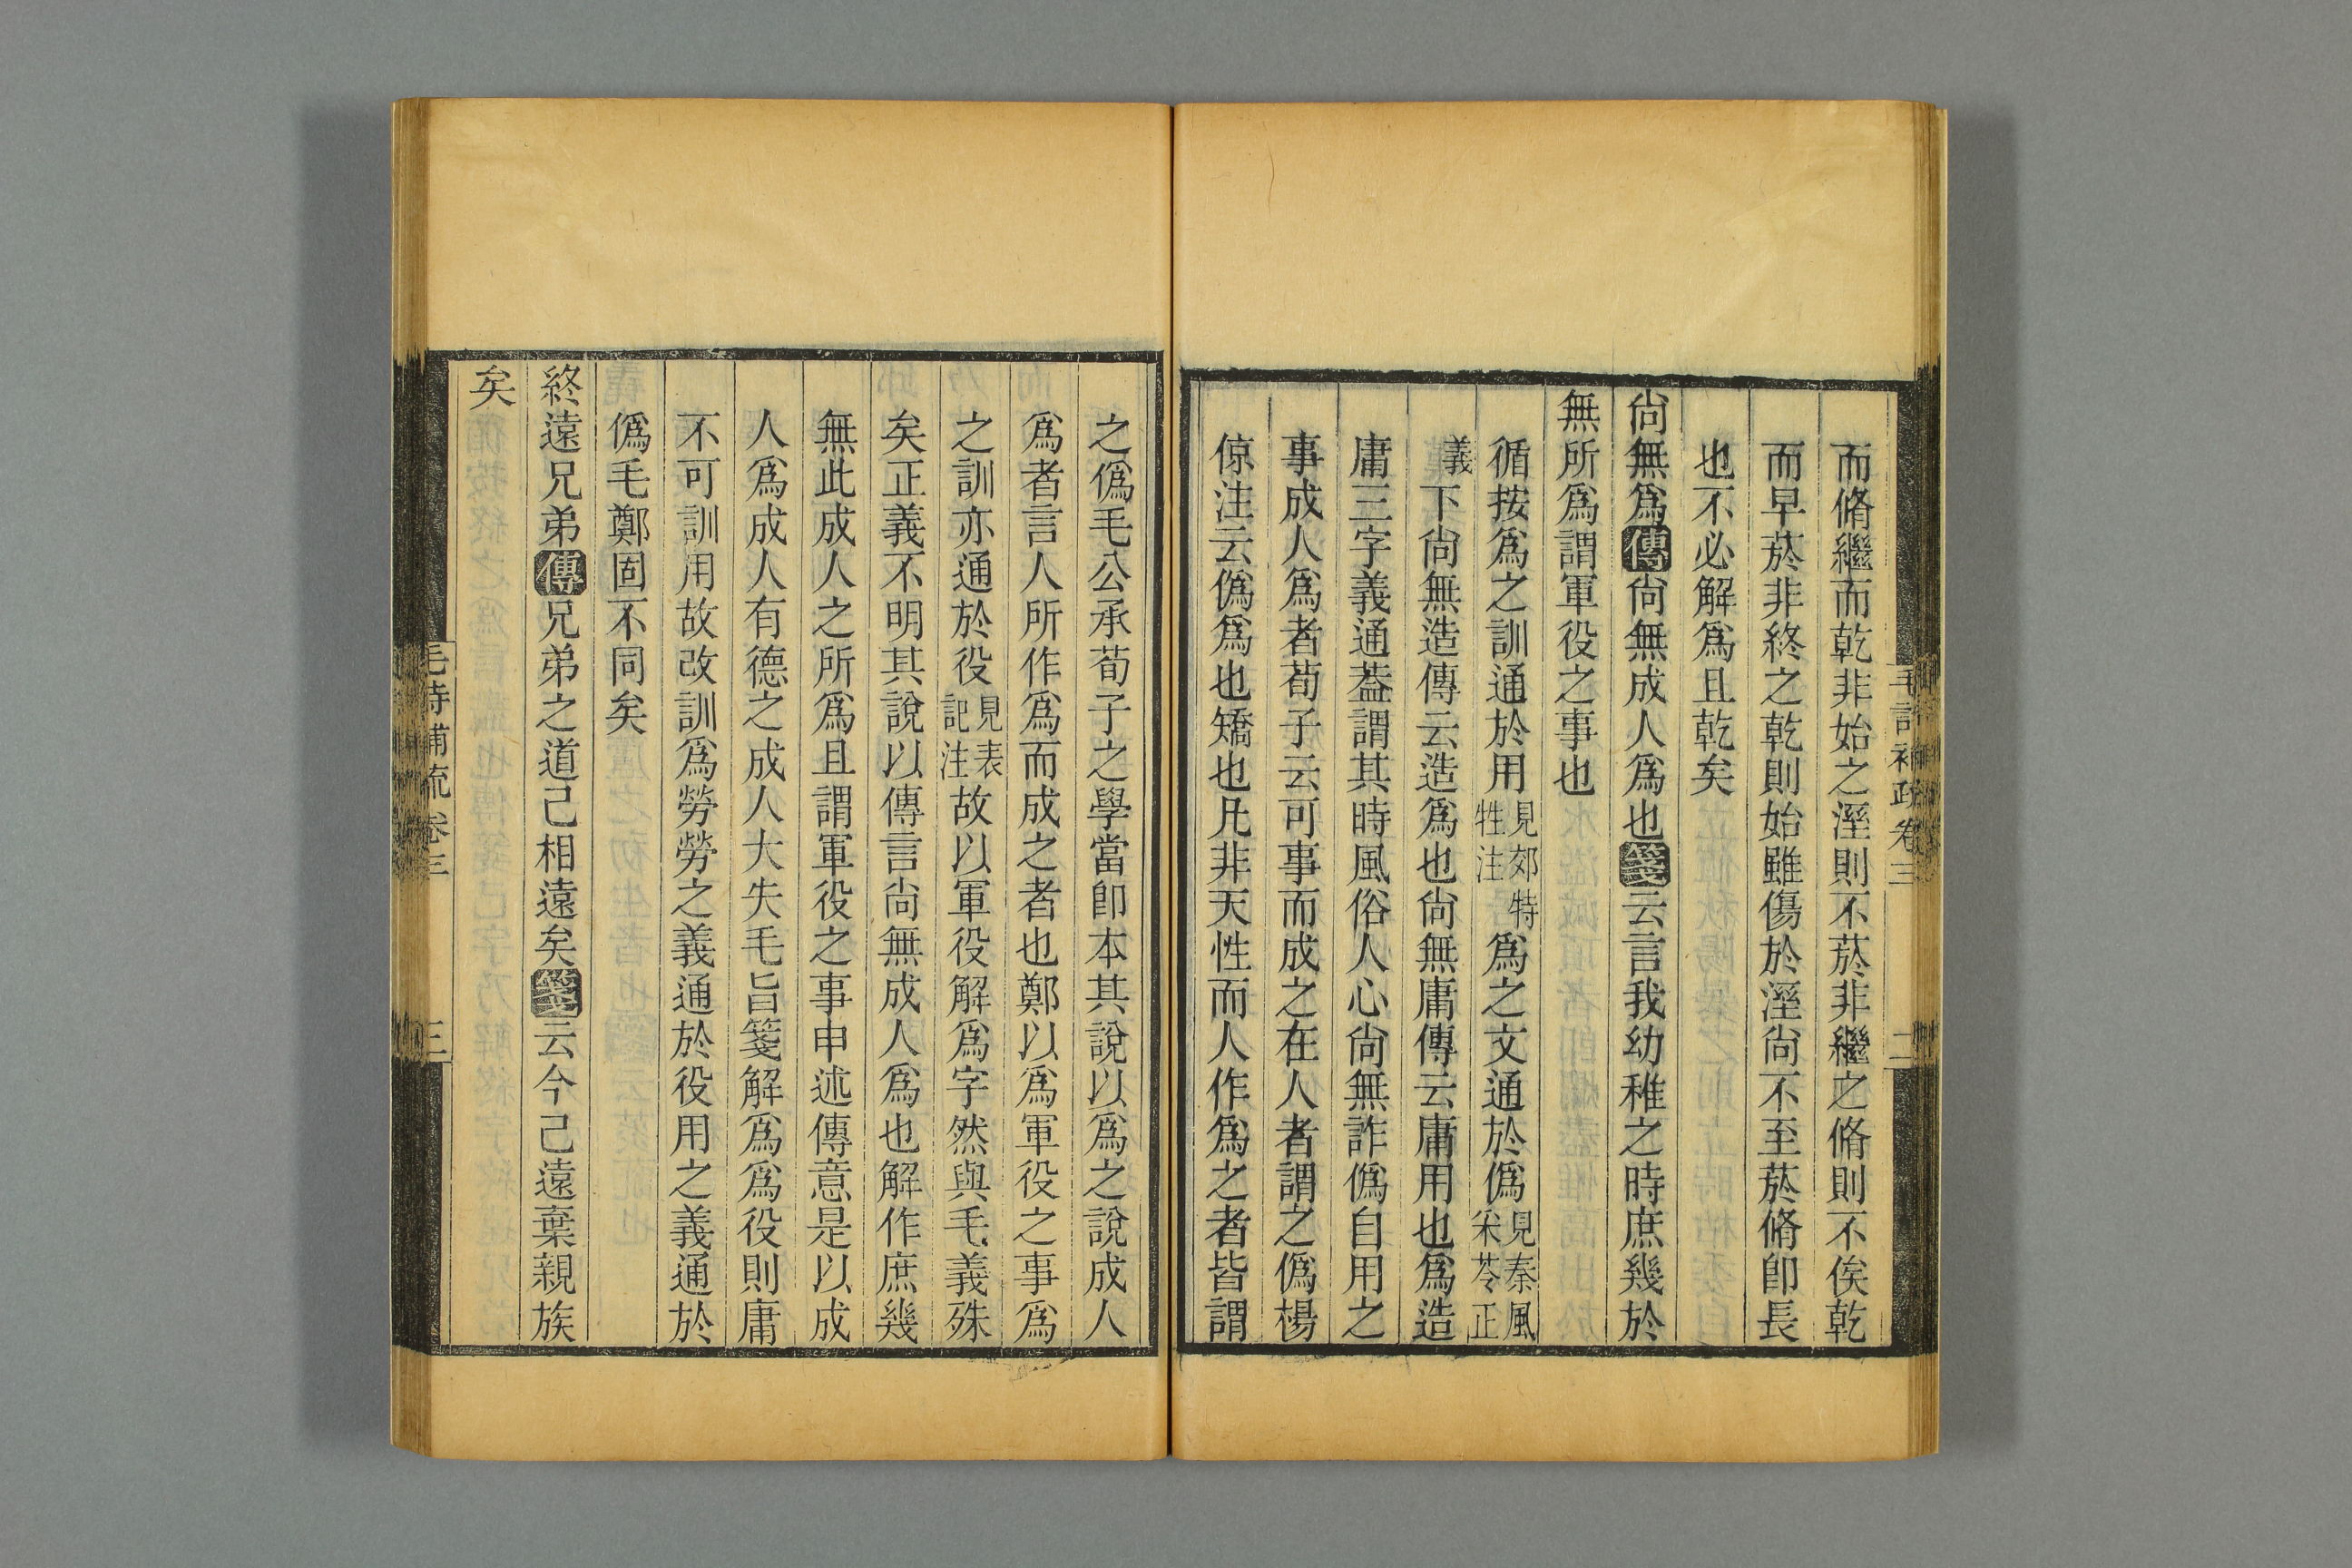 毛詩補疏卷三
二
而脩繼而乾非始之溼則不菸非繼之脩則不俟乾
而早菸非終之乾則始雖傷於溼尚不至菸脩卽長
也不必解爲且乾矣
尚無爲傳尚無成人爲也箋云言我幼稚之時庶幾於
無所爲謂軍役之事也
循按爲之訓通於用見郊特牲注爲之文通於僞見秦風采苓正
義下尚無造傳云造爲也尚無庸傳云庸用也爲造
庸三字義通葢謂其時風俗人心尚無詐僞自用之
事成人爲者荀子云可事而成之在人者謂之僞楊
倞注云僞爲也矯也凡非天性而人作爲之者皆謂
之僞毛公承荀子之學當卽本其說以爲之說成人
爲者言人所作爲而成之者也鄭以爲軍役之事爲
之訓亦通於役見表記注故以軍役解爲字然與毛義殊
矣正義不明其說以傳言尚無成人爲也解作庶幾
無此成人之所爲且謂軍役之事申述傳意是以成
人爲成人有德之成人大失毛旨箋解爲爲役則庸
不可訓用故改訓爲勞勞之義通於役用之義通於
僞毛鄭固不同矣
終遠兄弟傳兄弟之道已相遠矣箋云今已遠棄親族
矣
毛詩補疏卷三
三